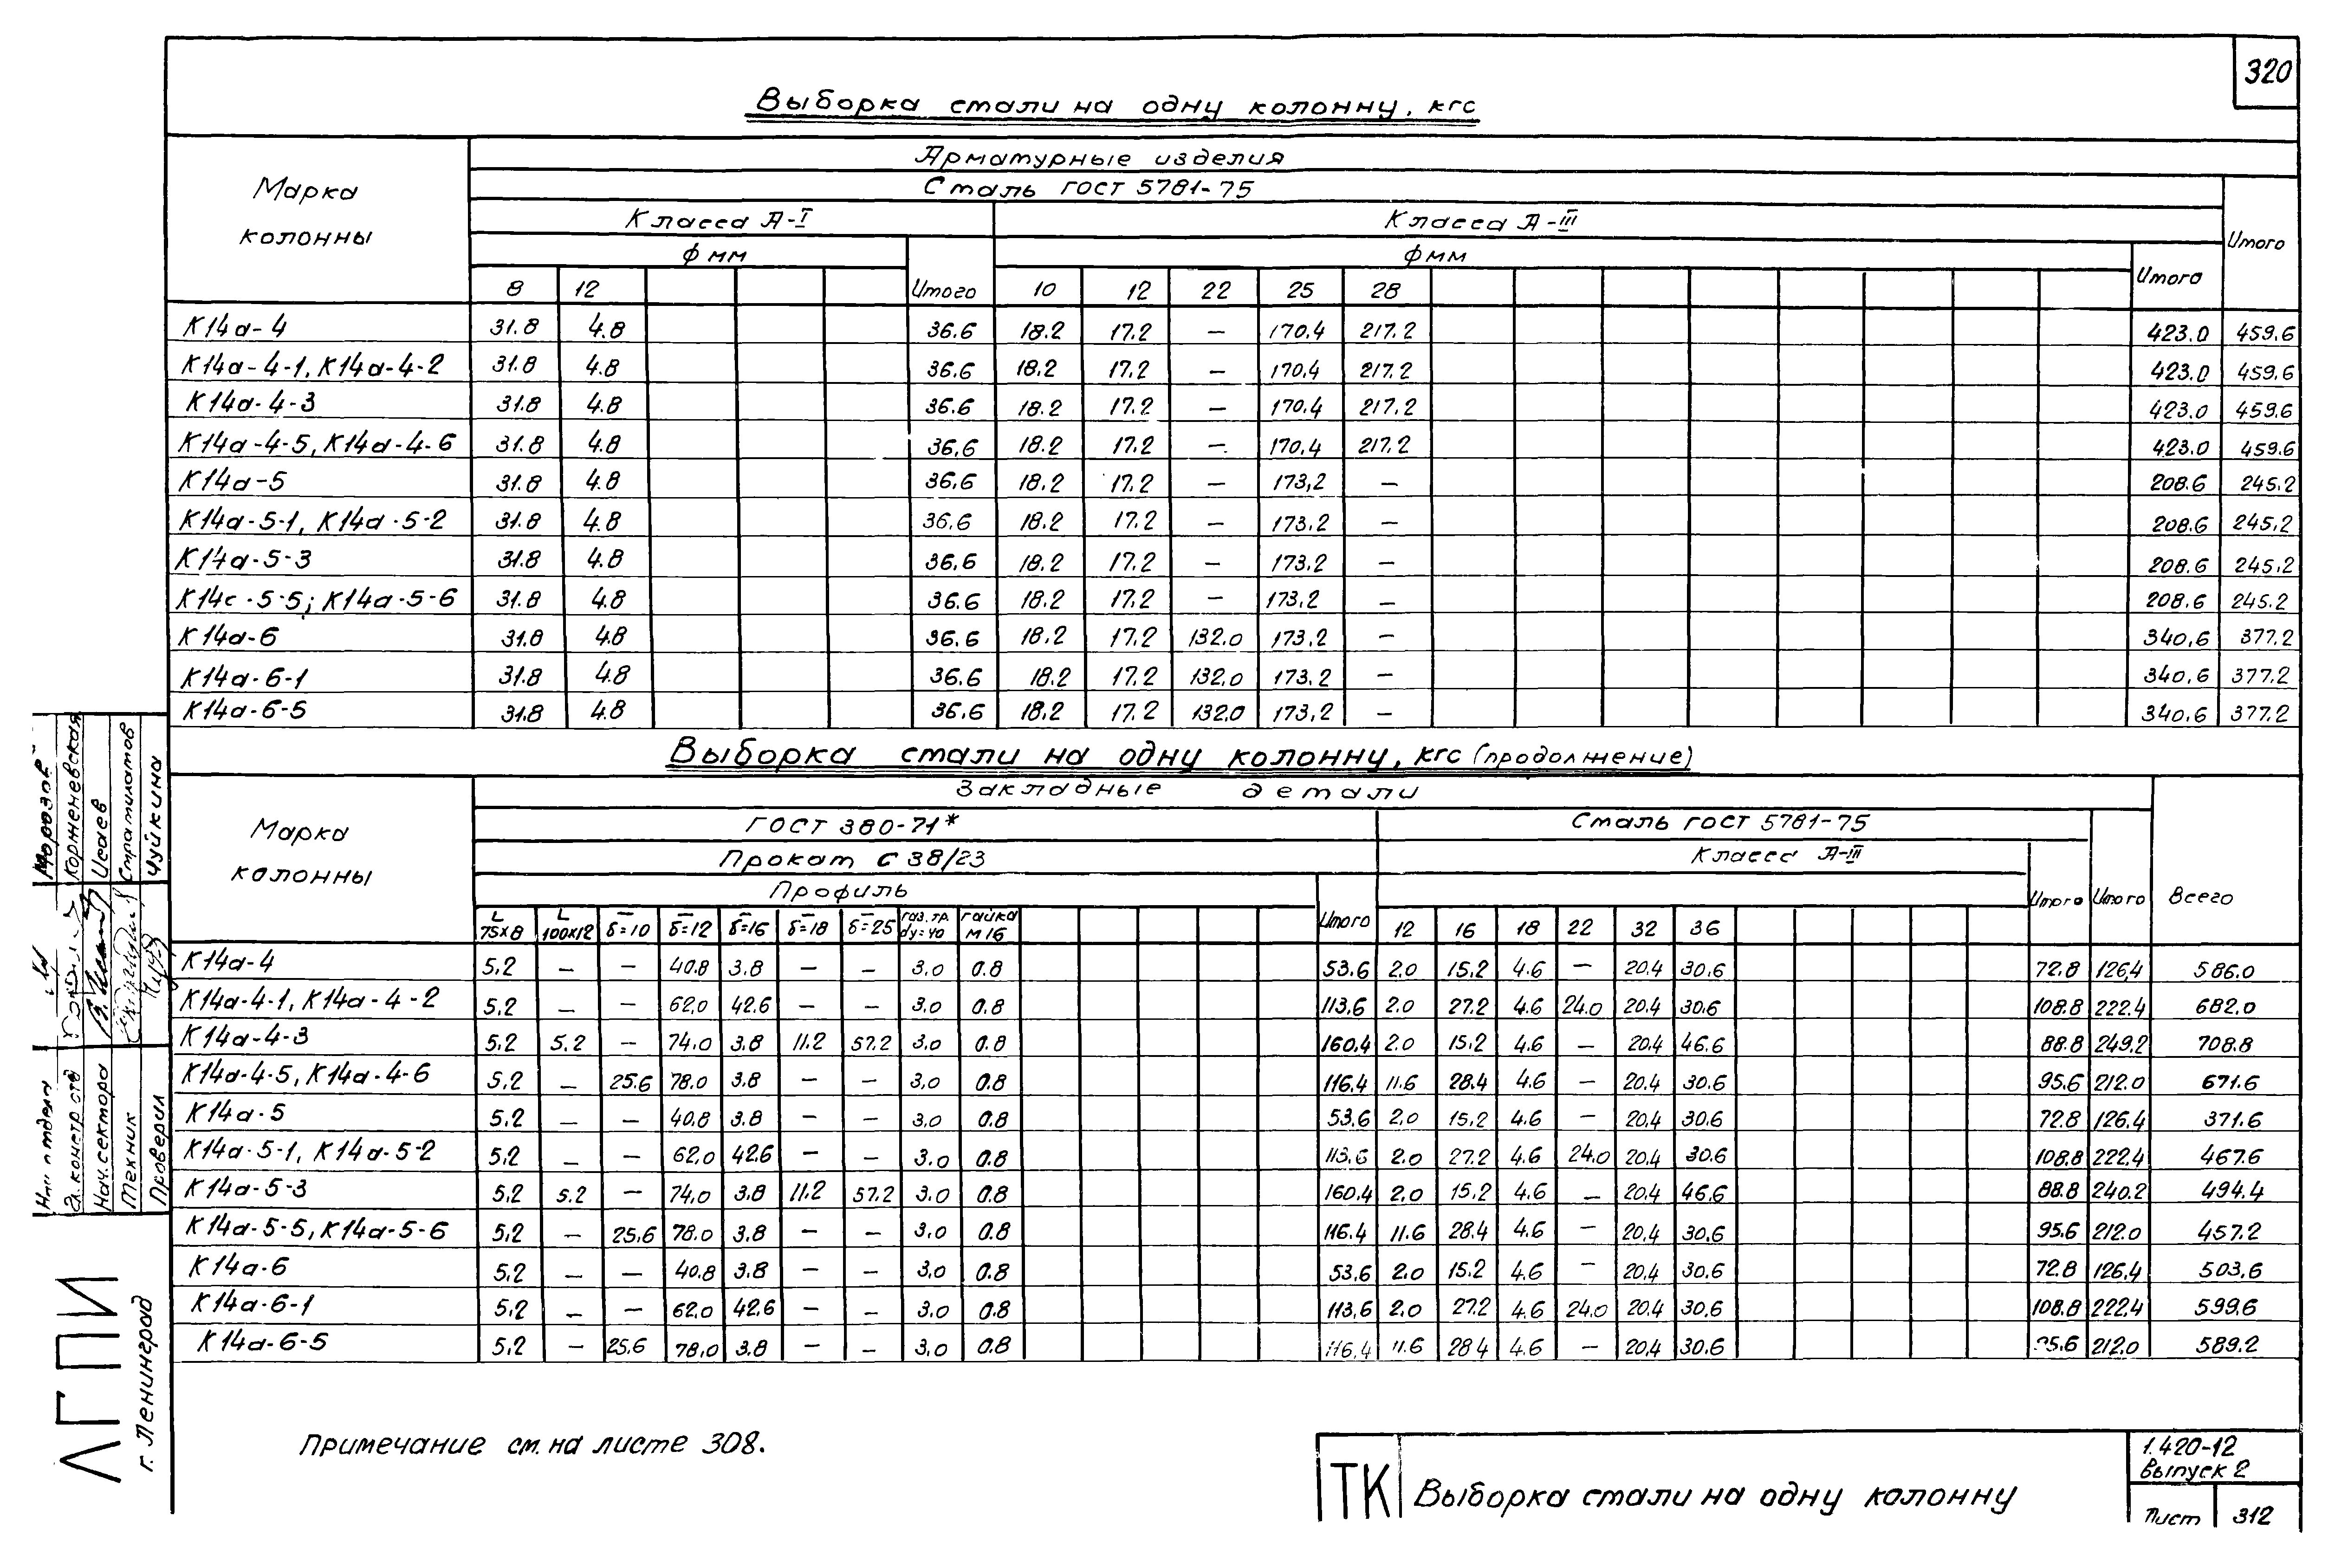 320
Выборка стали на одну колонну, кгс
Марка колонны
Арматурные изделия
Сталь ГОСТ 5781-75
Класса А-I
Класса А-III
Итого
ф мм
Итого
ф мм
Итого
8 12 10 12 22 25 28
К14а-4 31.8 4.8 36.6 18.2 17.2 — 170.4 217.2 423.0 459.6
К14а-4-1, К14а-4-2 31.8 4.8 36.6 18.2 17.2 — 170.4 217.2 423.0 459.6
К14а-4-3 31.8 4.8 36.6 18.2 17.2 — 170.4 217.2 423.0 459.6
К14а-4-5, К14а-4-6 31.8 4.8 36.6 18.2 17.2 — 170.4 217.2 423.0 459.6
К14а-5 31.8 4.8 36.6 18.2 17.2 — 173,2 — 208.6 245.2
К14а-5-1, К14а-5-2 31.8 4.8 36.6 18.2 17.2 — 173.2 — 208.6 245.2
К14а-5-3 31.8 4.8 36.6 18.2 17.2 — 173.2 — 208.6 245.2
К14с-5-5; К14а-5-6 31.8 4.8 36.6 18.2 17.2 — 173.2 — 208.6 245.2
К14а-6 31.8 4.8 36.6 18.2 17.2 132.0 173.2 — 340.6 377.2
К14а-6-1 31.8 4.8 36.6 18.2 17.2 132.0 173.2 — 340.6 377.2
К14а-6-5 31.8 4.8 36.6 18.2 17.2 132.0 173.2 — 340.6 377.2
Выборка стали на одну колонну, кгс (продолжение)
Марка колонны
Закладные детали
Всего
ГОСТ 380-71*
Сталь ГОСТ 5781-75
Итого
Прокат С 38/23
Класса А-III
Итого
Профиль
Итого
L 75×8 L 100×12 δ=10 δ=12 δ=16 δ=18 δ=25 газ.тр. dу=40 гайка М16 12 16 18 22 32 36
К14а-4 5.2 — — 40.8 3.8 — — 3.0 0.8 53.6 2.0 15.2 4.6 — 20.4 30.6 72.8 126.4 586.0
К14а-4-1, К14а-4-2 5.2 — — 62.0 42.6 — — 3.0 0.8 113.6 2.0 27.2 4.6 24.0 20.4 30.6 108.8 222.4 682.0
К14а-4-3 5.2 5.2 — 74.0 3.8 11.2 57.2 3.0 0.8 160.4 2.0 15.2 4.6 — 20.4 46.6 88.8 249.2 708.8
К14а-4-5, К14а-4-6 5.2 — 25.6 78.0 3.8 — — 3.0 0.8 116.4 11.6 28.4 4.6 — 20.4 30.6 95.6 212.0 671.6
К14а-5 5.2 — — 40.8 3.8 — — 3.0 0.8 53.6 2.0 15.2 4.6 — 20.4 30.6 72.8 126.4 371.6
К14а-5-1, К14а-5-2 5.2 — — 62.0 42.6 — — 3.0 0.8 113.6 2.0 27.2 4.6 24.0 20.4 30.6 108.8 222.4 467.6
К14а-5-3 5.2 5.2 — 74.0 3.8 11.2 57.2 3.0 0.8 160.4 2.0 15.2 4.6 — 20.4 46.6 88.8 240.2 494.4
К14а-5-5, К14а-5-6 5.2 — 25.6 78.0 3.8 — — 3.0 0.8 116.4 11.6 28.4 4.6 — 20.4 30.6 95.6 212.0 457.2
К14а-6 5.2 — — 40.8 3.8 — — 3.0 0.8 53.6 2.0 15.2 4.6 — 20.4 30.6 72.8 126.4 503.6
К14а-6-1 5.2 — — 62.0 42.6 — — 3.0 0.8 113.6 2.0 27.2 4.6 24.0 20.4 30.6 108.8 222.4 599.6
К14а-6-5 5.2 — 25.6 78.0 3.8 — — 3.0 0.8 116.4 11.6 28.4 4.6 — 20.4 30.6 95.6 212.0 589.2
Примечание см. на листе 308.
ТК
Выборка стали на одну колонну
1.420-12
Выпуск 2
Лист 312
Морозов
Гл.констр.отд Корженевская
Нач.сектора Исаев
Техник Стратилатов
Проверил Чуйкина
ЛГПИ
г. Ленинград